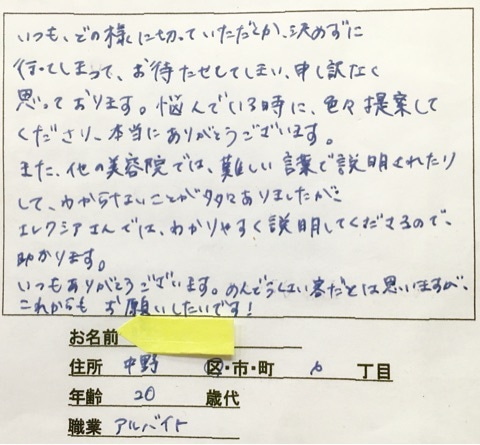 いつも、どの様に切っていただくか、決めずに
行ってしまって、お待たせしてしまい、申し訳なく
思っております。悩んでいる時に、色々提案して
くださり、本当にありがとうございます。
また、他の美容院では、難しい言葉で説明されたり
して、わからないことが多々ありましたが
エレクシアさんでは、わかりやすく説明してくださるので、
助かります。
いつもありがとうございます。めんどうくさい客だとは思いますが、
これからも お願いしたいです!
お名前
住所 中野 区・市・町 丁目
年齢 20 歳代
職業 アルバイト